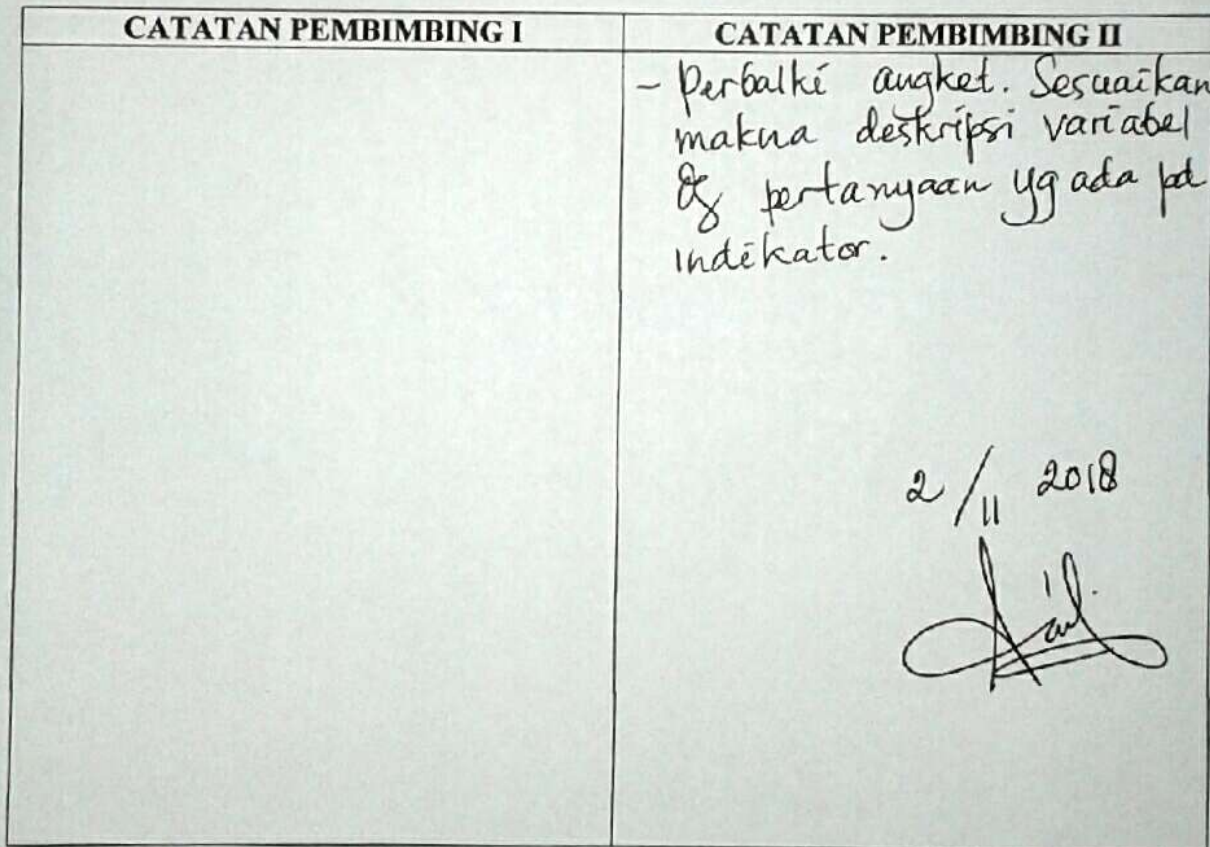 CATATAN PEMBIMBING I
CATATAN PEMBIMBING II
- Perbaiki angket. Sesuaikan
makna deskripsi variabel
dg pertanyaan yg ada pd
indikator.
2/11 2018